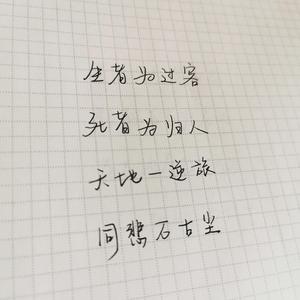 生者为过客
死者为归人
天地一逆旅
同悲万古尘